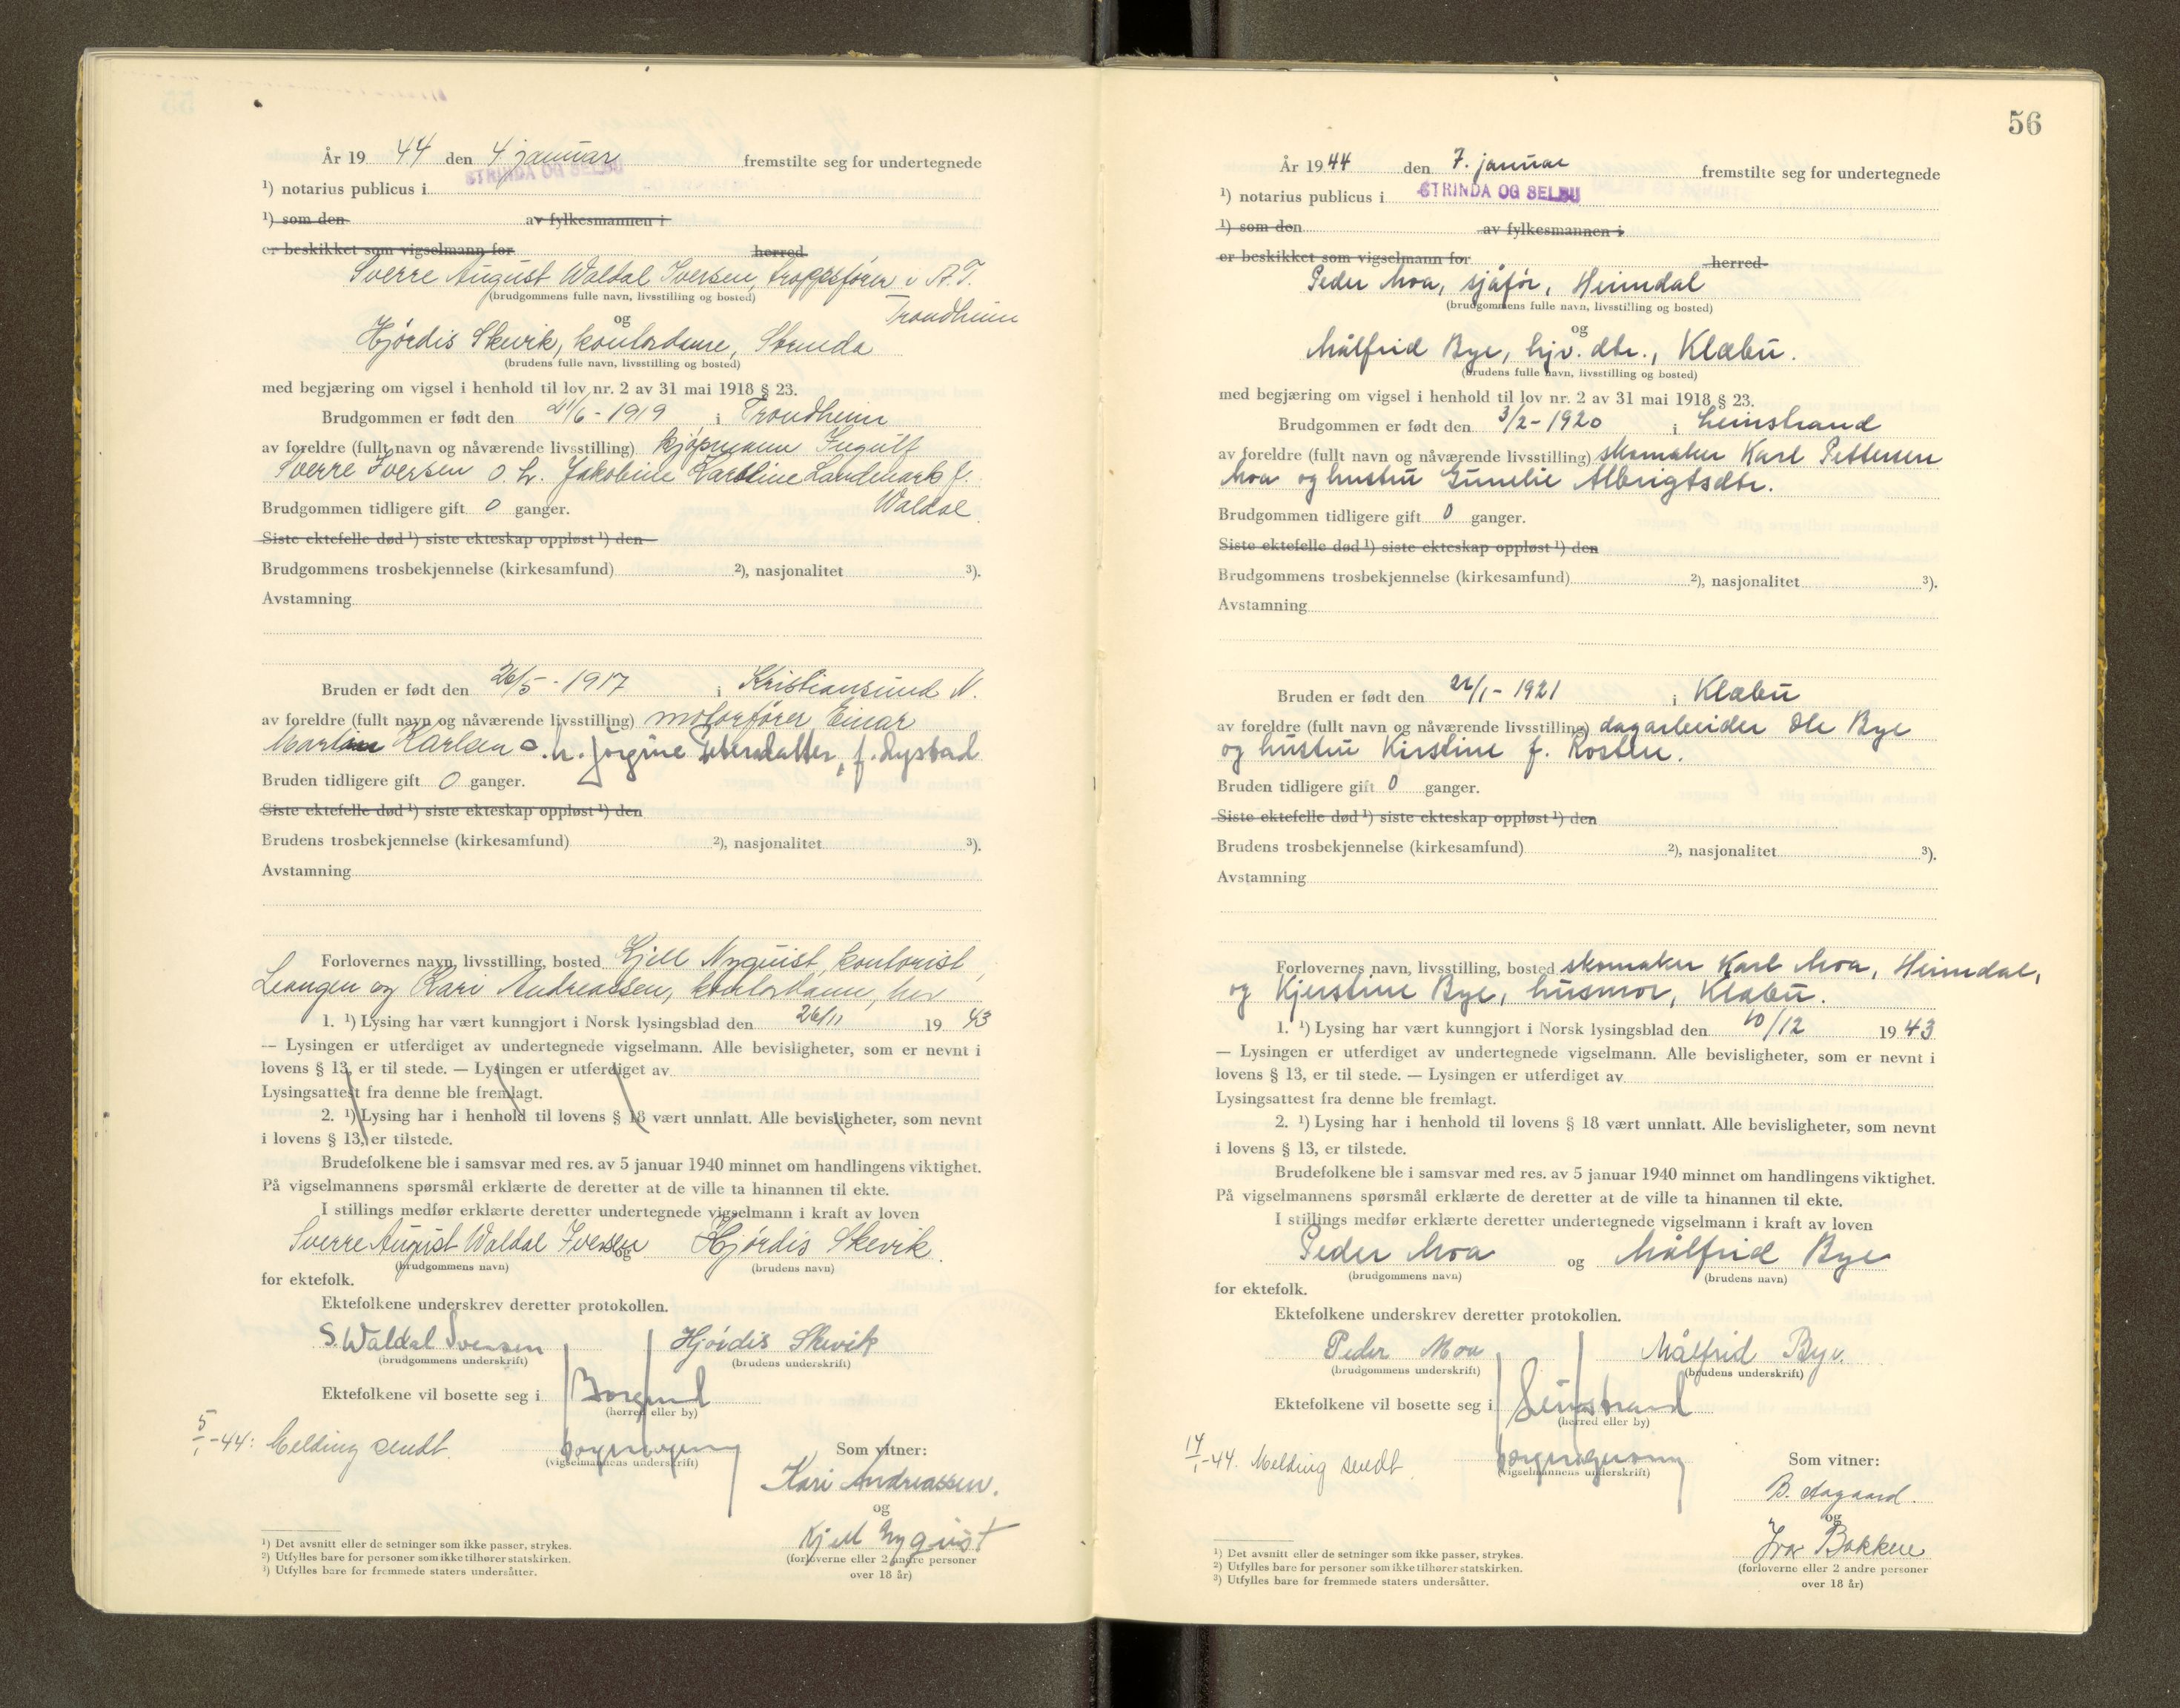 År 19 44 den 4 januar fremstilte seg for undertegnede
¹) notarius publicus i STRINDA OG SELBU
¹) som den av fylkesmannen i
er beskikket som vigselmann for herred
Sverre August Waldal Iversen, troppsfører i A.T.
(brudgommens fulle navn, livsstilling og bosted)
Trondheim
og
Hjørdis Skevik, kontordame, Strinda
(brudens fulle navn, livsstilling og bosted)
med begjæring om vigsel i henhold til lov nr. 2 av 31 mai 1918 § 23.
Brudgommen er født den 21/6 - 1919 i Trondheim
av foreldre (fullt navn og nåværende livsstilling) kjøpmann Ingulf
Sverre Iversen o. h. Jakobine Karoline Landmark f.
Waldal
Brudgommen tidligere gift 0 ganger.
Siste ektefelle død ¹) siste ekteskap oppløst ¹) den
Brudgommens trosbekjennelse (kirkesamfund) ²), nasjonalitet ³).
Avstamning
Bruden er født den 26/5 - 1917 i Kristiansund N.
av foreldre (fullt navn og nåværende livsstilling) motorfører Einar
Martin Karlsen o. h. Jørgine Petersdatter, f. Nystad
Bruden tidligere gift 0 ganger.
Siste ektefelle død ¹) siste ekteskap oppløst ¹) den
Brudens trosbekjennelse (kirkesamfund) ²), nasjonalitet ³).
Avstamning
Forlovernes navn, livsstilling, bosted Kjell Nyquist, kontorist,
Leangen og Kari Andreassen, kontordame, her
1. ¹) Lysing har vært kunngjort i Norsk lysingsblad den 26/11 19 43
— Lysingen er utferdiget av undertegnede vigselmann. Alle bevisligheter, som er nevnt i
lovens § 13, er til stede. — Lysingen er utferdiget av
Lysingsattest fra denne ble fremlagt.
2. ¹) Lysing har i henhold til lovens § 18 vært unnlatt. Alle bevisligheter, som nevnt
i lovens § 13, er tilstede.
Brudefolkene ble i samsvar med res. av 5 januar 1940 minnet om handlingens viktighet.
På vigselmannens spørsmål erklærte de deretter at de ville ta hinannen til ekte.
I stillings medfør erklærte deretter undertegnede vigselmann i kraft av loven
Sverre August Waldal Iversen og Hjørdis Skevik.
(brudgommens navn) (brudens navn)
for ektefolk.
Ektefolkene underskrev deretter protokollen.
S. Waldal Iversen Hjørdis Skevik
(brudgommens underskrift) (brudens underskrift)
Ektefolkene vil bosette seg i Borgund
(herred eller by)
5/1-44: Melding sendt.
(vigselmannens underskrift)
Som vitner:
Kari Andreassen.
og
Kjell Nyquist
(forloverne eller 2 andre personer
over 18 år)
¹) Det avsnitt eller de setninger som ikke passer, strykes.
²) Utfylles bare for personer som ikke tilhører statskirken.
³) Utfylles bare for fremmede staters undersåtter.
56
År 19 44 den 7. januar fremstilte seg for undertegnede
¹) notarius publicus i STRINDA OG SELBU
¹) som den av fylkesmannen i
er beskikket som vigselmann for herred
Peder Moa, sjåfør, Heimdal
(brudgommens fulle navn, livsstilling og bosted)
og
Målfrid Bye, hjv. dtr., Klæbu.
(brudens fulle navn, livsstilling og bosted)
med begjæring om vigsel i henhold til lov nr. 2 av 31 mai 1918 § 23.
Brudgommen er født den 3/2 - 1920 i Leinstrand
av foreldre (fullt navn og nåværende livsstilling) skomaker Karl Pettersen
Moa og hustru Gunelie Albrigtsdtr.
Brudgommen tidligere gift 0 ganger.
Siste ektefelle død ¹) siste ekteskap oppløst ¹) den
Brudgommens trosbekjennelse (kirkesamfund) ²), nasjonalitet ³).
Avstamning
Bruden er født den 22/1 - 1921 i Klæbu
av foreldre (fullt navn og nåværende livsstilling) dagarbeider Ole Bye
og hustru Kirstine f. Rosten.
Bruden tidligere gift 0 ganger.
Siste ektefelle død ¹) siste ekteskap oppløst ¹) den
Brudens trosbekjennelse (kirkesamfund) ²), nasjonalitet ³).
Avstamning
Forlovernes navn, livsstilling, bosted skomaker Karl Moa, Heimdal,
og Kjerstine Bye, husmor, Klæbu.
1. ¹) Lysing har vært kunngjort i Norsk lysingsblad den 10/12 19 43
— Lysingen er utferdiget av undertegnede vigselmann. Alle bevisligheter, som er nevnt i
lovens § 13, er til stede. — Lysingen er utferdiget av
Lysingsattest fra denne ble fremlagt.
2. ¹) Lysing har i henhold til lovens § 18 vært unnlatt. Alle bevisligheter, som nevnt
i lovens § 13, er tilstede.
Brudefolkene ble i samsvar med res. av 5 januar 1940 minnet om handlingens viktighet.
På vigselmannens spørsmål erklærte de deretter at de ville ta hinannen til ekte.
I stillings medfør erklærte deretter undertegnede vigselmann i kraft av loven
Peder Moa og Målfrid Bye
(brudgommens navn) (brudens navn)
for ektefolk.
Ektefolkene underskrev deretter protokollen.
Peder Moa Målfrid Bye.
(brudgommens underskrift) (brudens underskrift)
Ektefolkene vil bosette seg i Leinstrand
(herred eller by)
14/1-44. Melding sendt.
(vigselmannens underskrift)
Som vitner:
B. Aagaard.
og
Ivar Bakken
(forloverne eller 2 andre personer
over 18 år)
¹) Det avsnitt eller de setninger som ikke passer, strykes.
²) Utfylles bare for personer som ikke tilhører statskirken.
³) Utfylles bare for fremmede staters undersåtter.